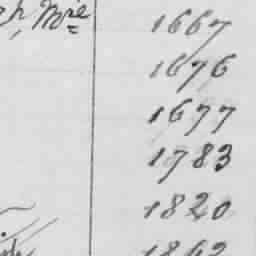 Mrie 1667
1676
1677
1783
1820
1862